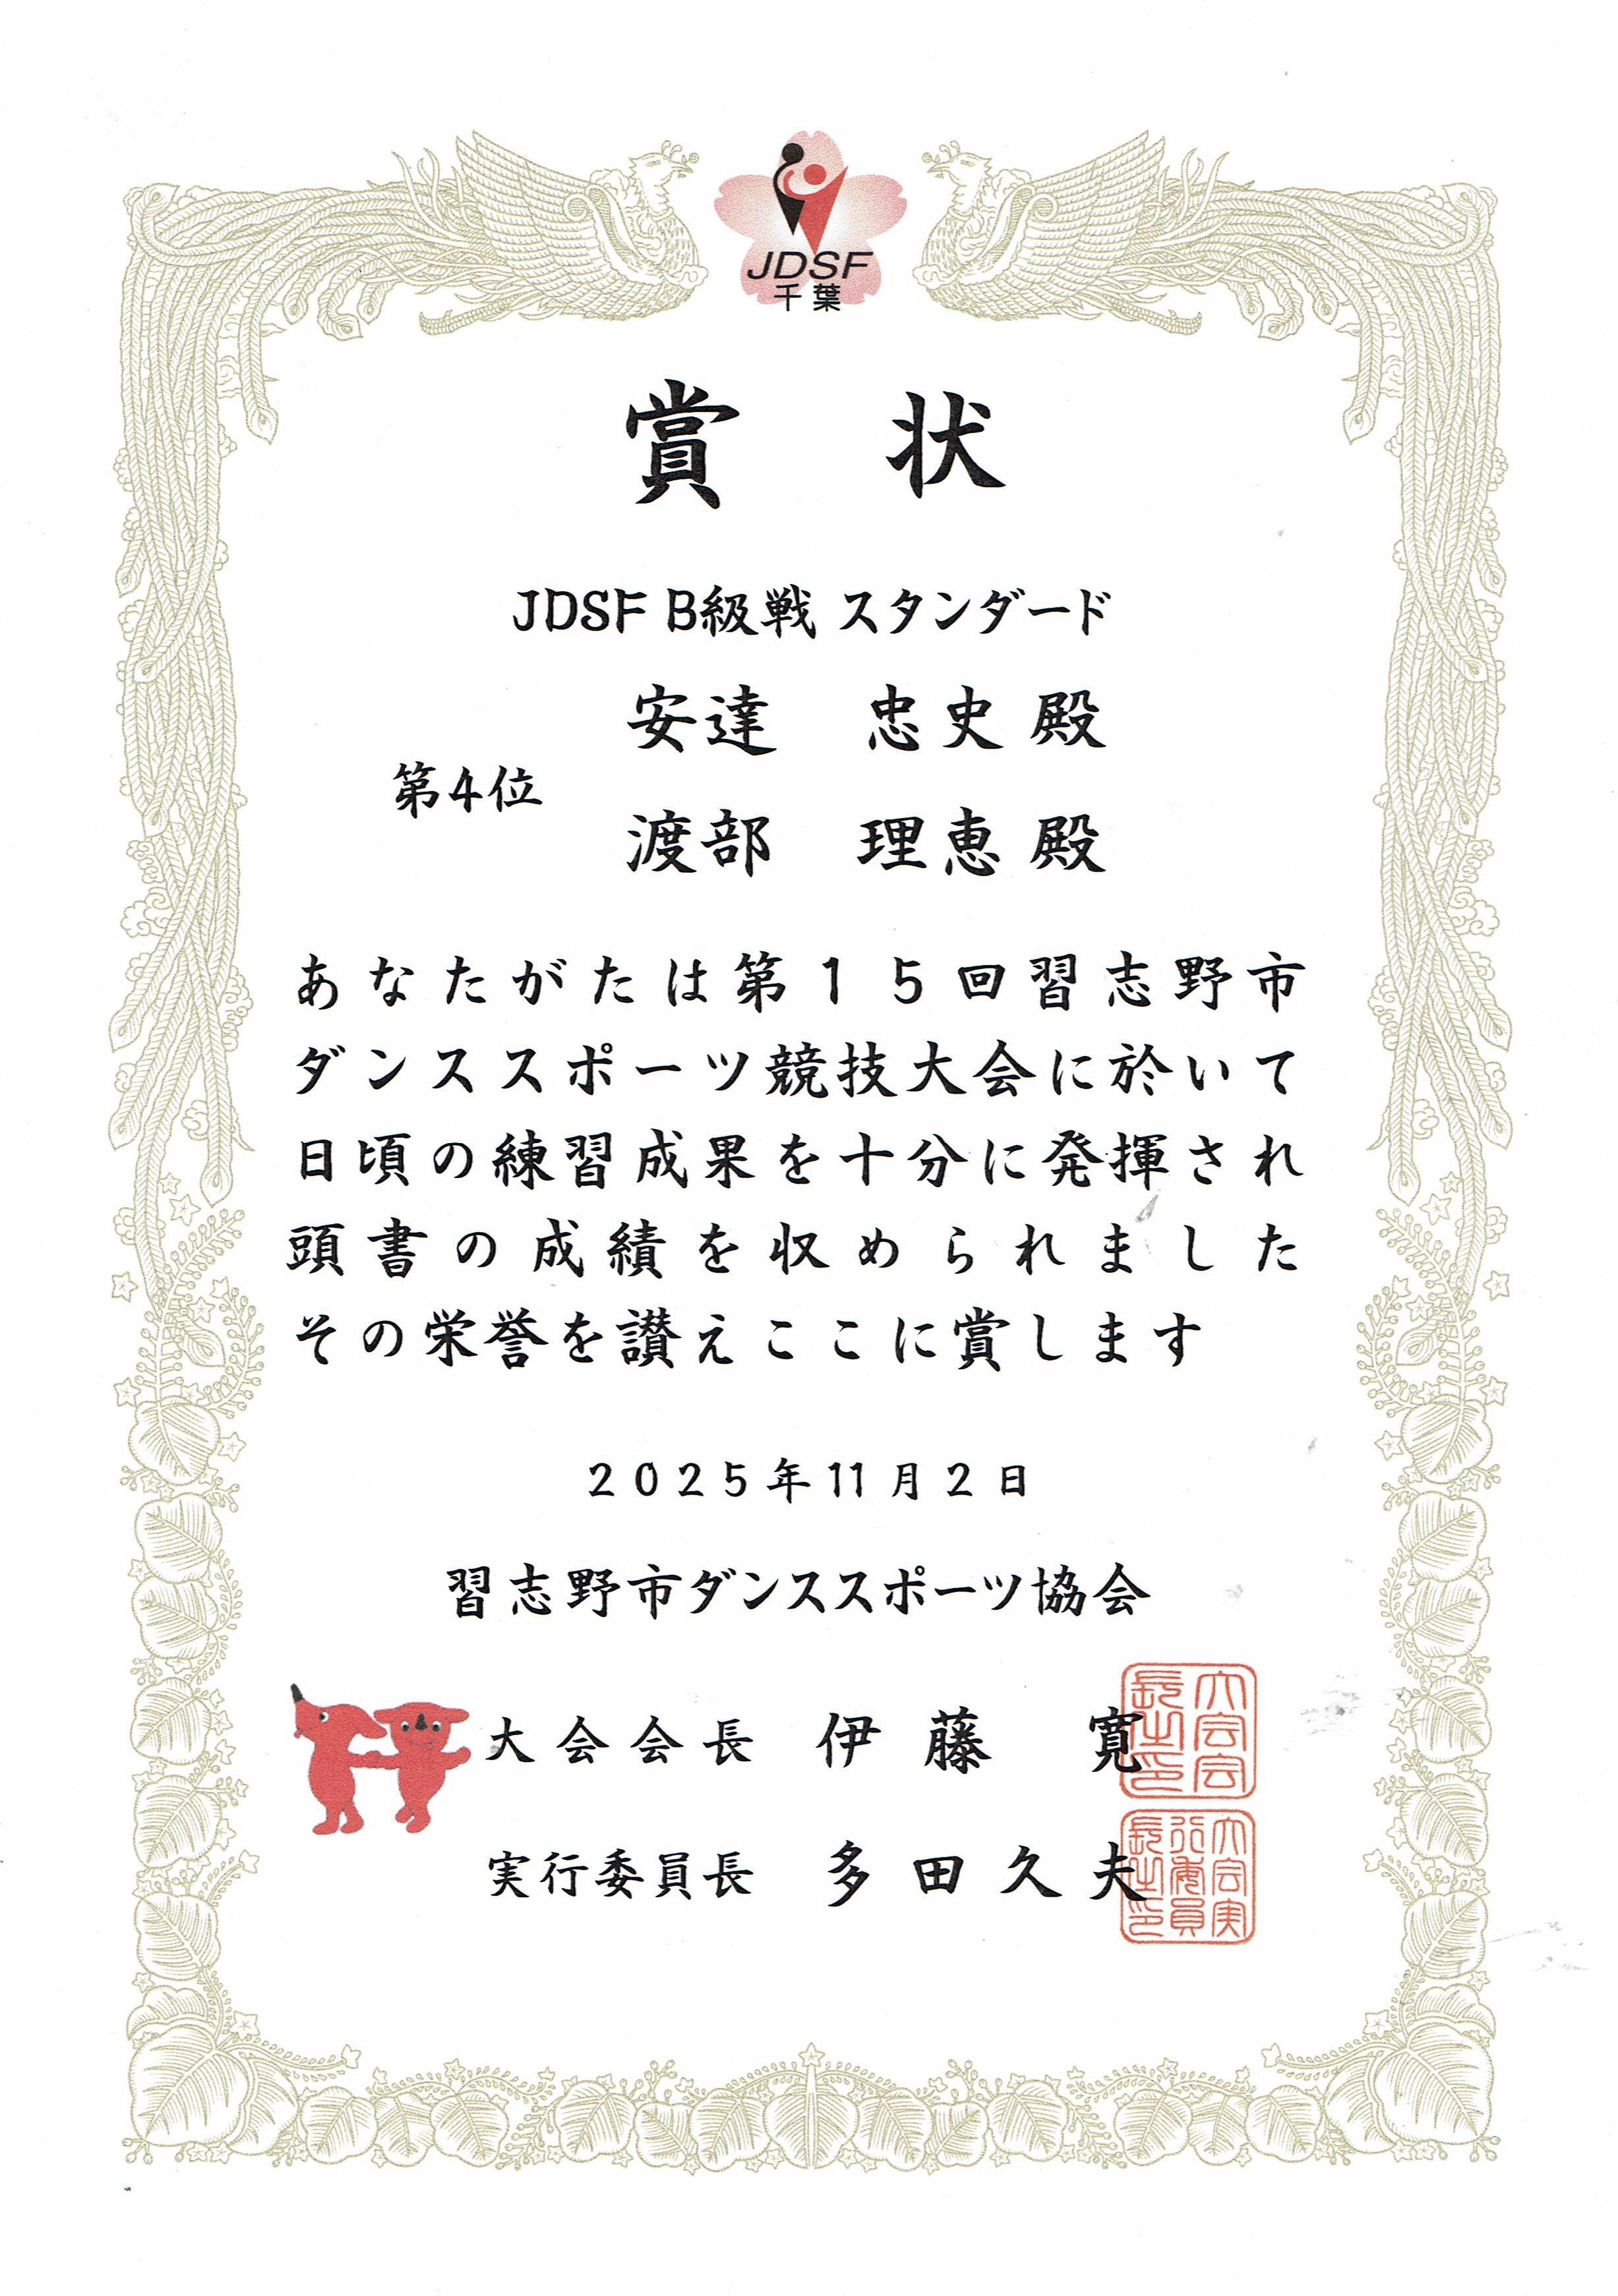 JDSF
千葉
賞 状
JDSF B級戦 スタンダード
安達 忠史 殿
第4位
渡部 理恵 殿
あなたがたは第15回習志野市
ダンススポーツ競技大会に於いて
日頃の練習成果を十分に発揮され
頭書の成績を収められました
その栄誉を讃えここに賞します
2025年11月2日
習志野市ダンススポーツ協会
大会会長 伊藤 寛
大会会長之印
実行委員長 多田久夫
大会実行委員長之印